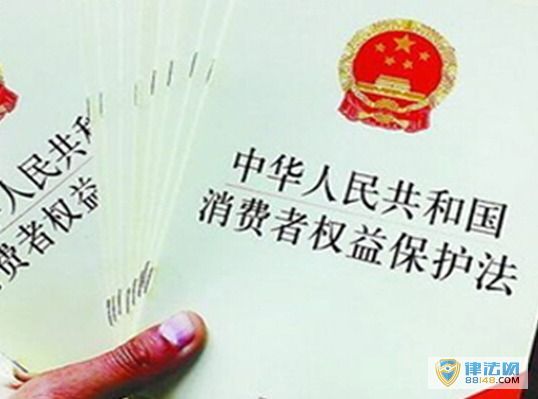 中华人民共和国
消费者权益保护法
人民共和
费者权益
律法网
88148.com